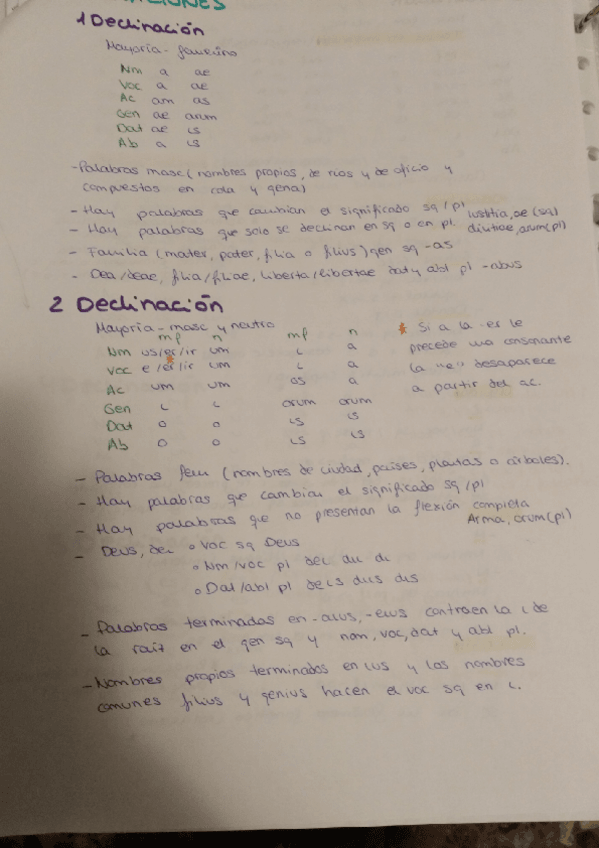 CIONES
1 Declinación
Mayoría - femenino
Nm a ae
Voc a ae
Ac am as
Gen ae arum
Dat ae is
Ab a is
-Palabras masc (nombres propios, de ríos y de oficio y
compuestos en cola y gena)
- Hay palabras que cambian el significado sg/pl iustitia, ae (sg)
- Hay palabras que solo se declinan en sg o en pl. divitiae, arum (pl)
- Familia (mater, pater, filia o filius) gen sg -as
- Dea/deae, filia/filiae, liberta/libertae dat y abl pl -abus
2 Declinación
Mayoría - masc y neutro
mf n mf n
Nm us/er/ir um i a
Voc e/er/ir um i a
Ac um um os a
Gen i i orum orum
Dat o o is is
Ab o o is is
* Si a la -er le
precede una consonante
la "e" desaparece
a partir del ac.
- Palabras fem (nombres de ciudad, países, plantas o árboles).
- Hay palabras que cambian el significado sg/pl
- Hay palabras que no presentan la flexión completa
Arma, orum (pl)
- Deus, dei o Voc sg Deus
o Nm/voc pl dei dii di
o Dat/abl pl deis diis dis
- Palabras terminadas en -aius, -eius contraen la i de
la raíz en el gen sg y nom, voc, dat y abl pl.
- Nombres propios terminados en ius y los nombres
comunes filius y genius hacen el voc sg en i.